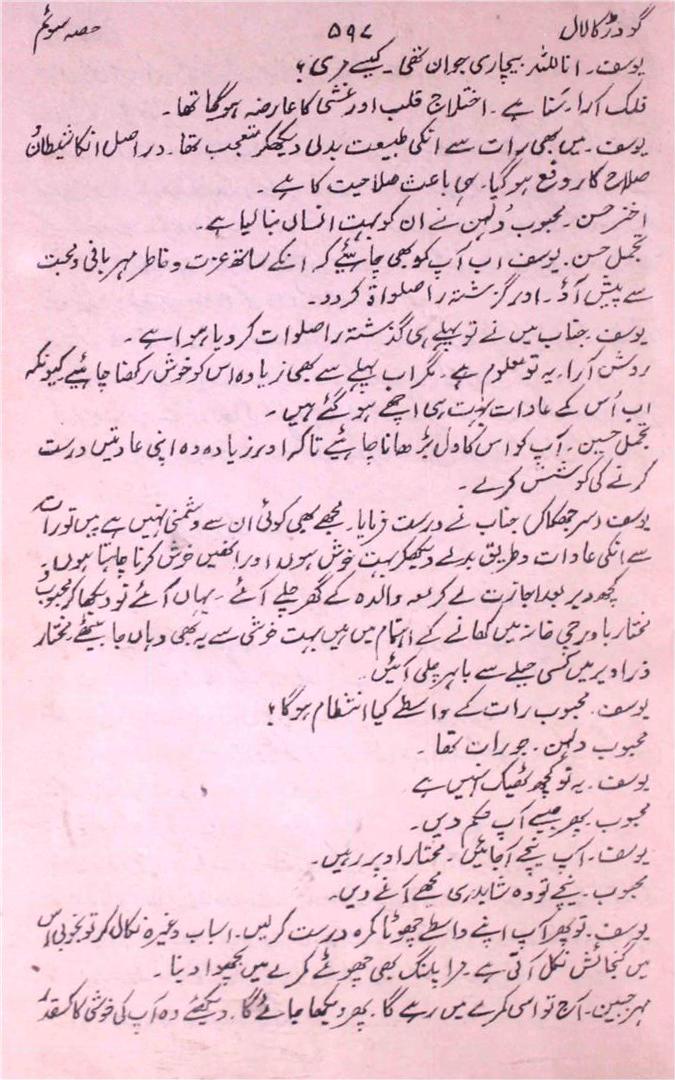 گودڑ کا لال ۵۹۷ حصہ سوئم
یوسف۔ اناللہ بیچاری جوان تھی۔ کیسے مری؟
فلک آرا۔ سنا ہے۔ اختلاج قلب اور غشی کا عارضہ ہوگیا تھا۔
یوسف۔ میں بھی رات سے انکی طبیعت بدلی دیکھکر متعجب تھا۔ دراصل انکا شیطان
صلاح کار دفع ہوگیا۔ یہی باعث صلاحیت کا ہے۔
اختر حسن۔ محبوب دُلہن نے ان کو بہت انسان بنا لیا ہے۔
تجمل حسن۔ یوسف اب آپ کو بھی چاہیئے کہ انکے ساتھ عزت و خاطر مہربانی و محبت
سے پیش آؤ۔ اور گزشتہ را صلواۃ کردو۔
یوسف۔ جناب میں نے تو پہلے ہی گذشتہ را صلوات کردیا ہوا ہے۔
روشن آرا۔ یہ تو معلوم ہے۔ مگر اب پہلے سے بھی زیادہ اس کو خوش رکھنا چاہئیے کیونکہ
اب اُس کے عادات بہُت ہی اچھے ہوگئے ہیں۔
تجمل حسین۔ آپ کو اس کا دل بڑھانا چاہئیے تاکہ اور زیادہ وہ اپنی عادتیں درست
کرنے کی کوشش کرے۔
یوسف (سر جھکاکر) جناب نے درست فرمایا۔ مجھے بھی کوئی ان سے دشمنی نہیں ہے میں تو رات
سے انکی عادات و طریق بدلے دیکھکر بہت خوش ہوں اور انھیں خوش کرنا چاہتا ہوں۔
کچھ دیر بعد اجازت لے کر معہ والدہ کے گھر چلے آئے۔ یہاں آئے تو دیکھا کہ محبوب و
مختار باورچی خانہ میں کھانے کے اہتمام میں ہیں بہت خوشی سے یہ بھی وہاں جا بیٹھے مختار
ذرا دیر میں کسی حیلے سے باہر چلی آئیں۔
یوسف۔ محبوب رات کے واسطے کیا انتظام ہوگا؟
محبوب دلہن۔ جو رات تھا۔
یوسف۔ یہ تو کچھ ٹھیک نہیں ہے
محبوب۔ پھر جیسے آپ حکم دیں۔
یوسف۔ آپ نیچے آجائیں۔ مختار اوپر رہیں۔
محبوب۔ نیچے تو وہ شاید ہی مجھے آنے دیں۔
یوسف۔ تو پھر آپ اپنے واسطے چھوٹا کمرہ درست کرلیں۔ اسباب وغیرہ نکال کر تو بخوبی اس
میں گنجائش نکل آتی ہے۔ میرا پلنگ بھی چھوٹے کمرے میں بچھوا دینا۔
مہر جبین۔ آج تو اسی کمرے میں رہے گا۔ پھر دیکھا جائے گا۔ دیکھئے وہ آپ کی خوشی کا کسقدر